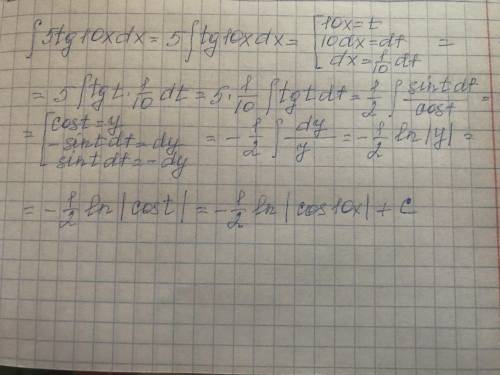 ∫5tg10xdx = 5∫tg10xdx = [10x=t
10dx=dt
dx=1/10 dt =
= 5∫tgt·1/10 dt = 5·1/10 ∫tgtdt = 1/2 ∫ sintdt/cost =
= [cost=y
-sintdt=dy
sintdt=-dy = -1/2 ∫ dy/y = -1/2 ln|y| =
= -1/2 ln|cost| = -1/2 ln|cos10x| + C